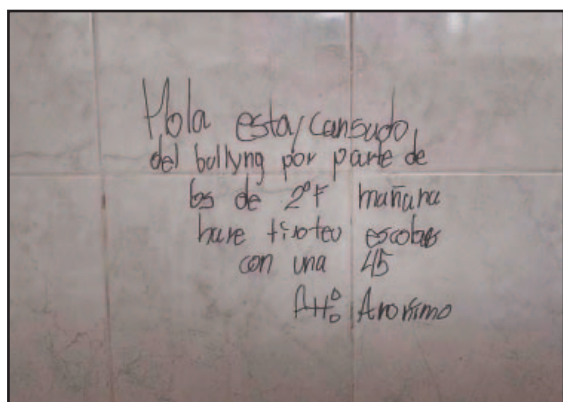 Hola estoy cansado
del bullyng por parte de
los de 2°F mañana
hare tiroteo escolar
con una 45
Att: Anonimo